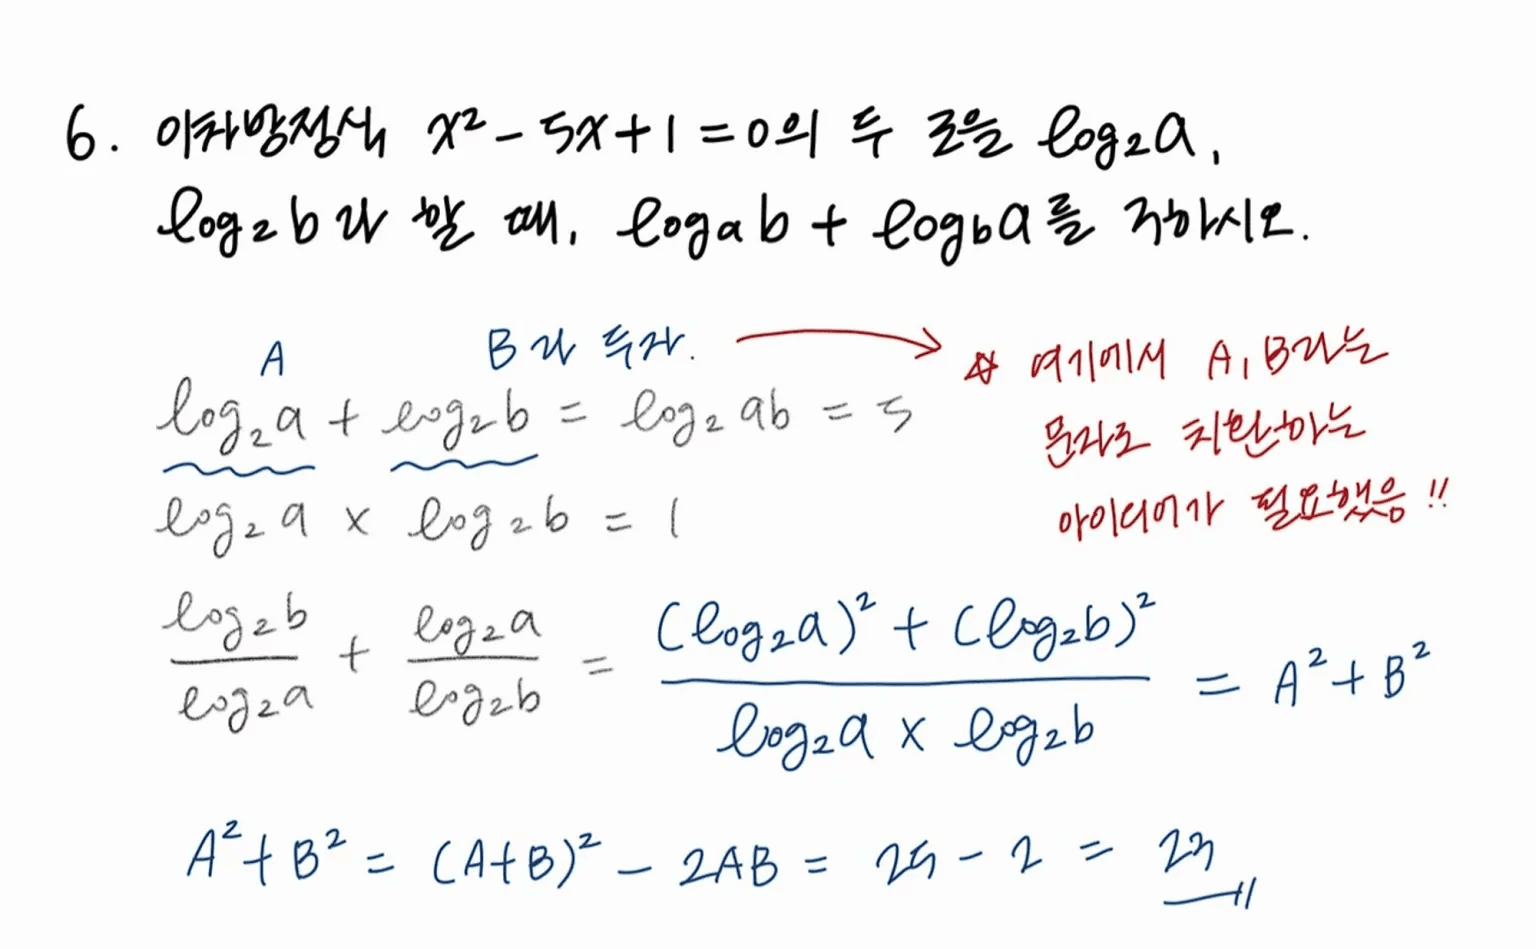 6. 이차방정식 x² - 5x + 1 = 0의 두 근을 log₂a,
log₂b라 할 때, logₐb + log_b a를 구하시오.
A B라 두자. → ☆ 여기에서 A, B라는
log₂a + log₂b = log₂ab = 5 문자로 치환하는
log₂a × log₂b = 1 아이디어가 필요했음!!
log₂b/log₂a + log₂a/log₂b = ((log₂a)² + (log₂b)²)/(log₂a × log₂b) = A² + B²
A² + B² = (A+B)² - 2AB = 25 - 2 = 23